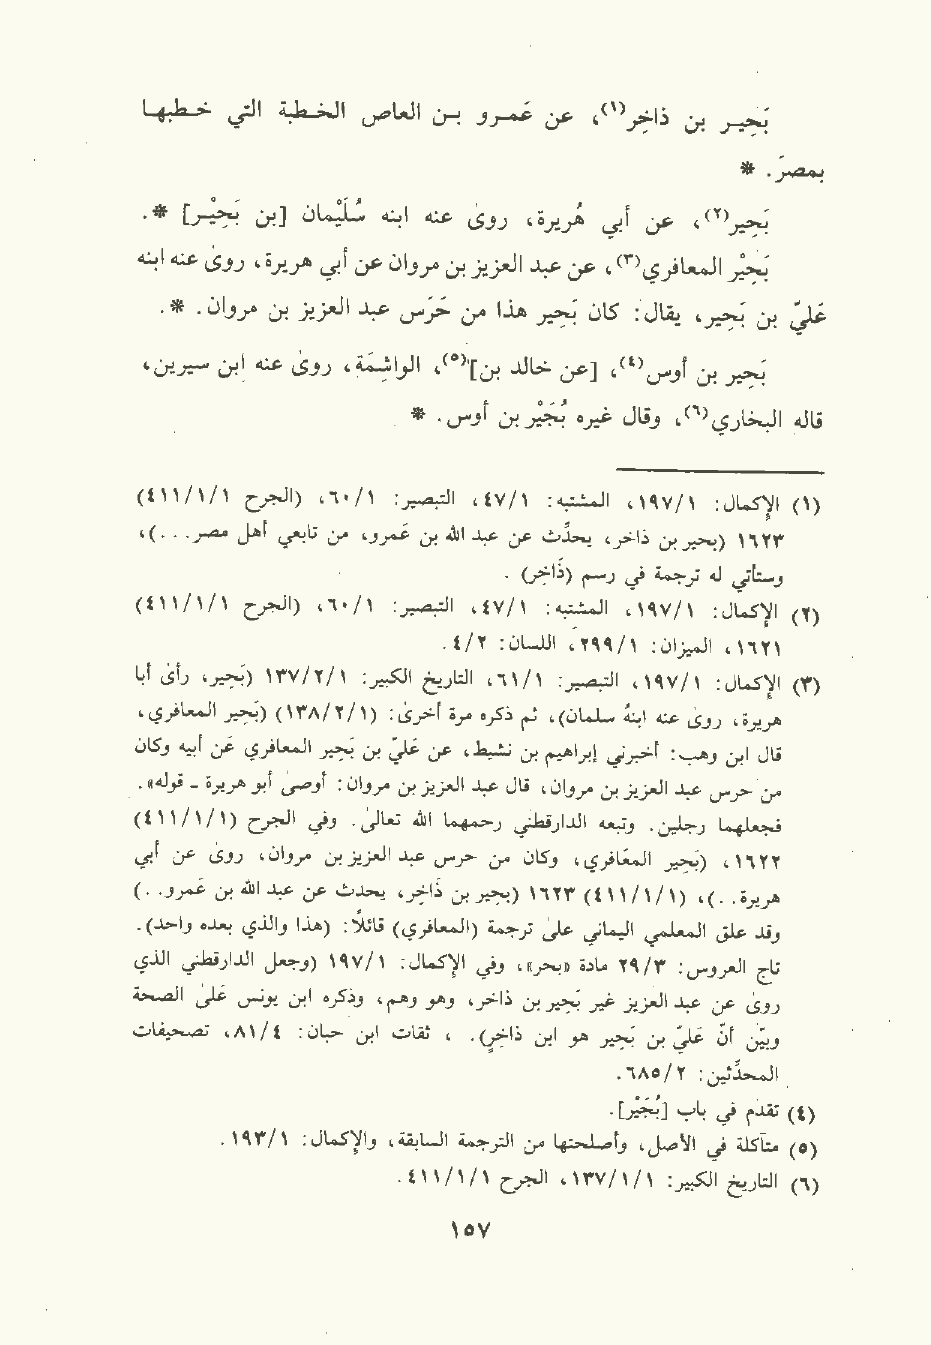 بَحِيـر بن ذاخِر(١)، عن عَمـرو بـن العاص الخـطبة التي خـطبهـا
بمصرَ. *
بَحِير(٢)، عن أبي هُريرة، روىٰ عنه ابنه سُلَيْمان [بن بَحِيْـر] *.
بَحِيْر المعافري(٣)، عن عبد العزيز بن مروان عن أبي هريرة، روىٰ عنه ابنه
عَليّ بن بَحِير، يقال: كان بَحِير هذا من حَرَسِ عبد العزيز بن مروان. *.
بَحِير بن أوس(٤)، [عن خالد بن](٥)، الواشِمَة، روىٰ عنه ابن سيرين،
قاله البخاري(٦)، وقال غيره بُجَيْر بن أوس. *
(١) الإكمال: ١٩٧/١، المشتبه: ٤٧/١، التبصير: ٦٠/١، (الجرح ٤١١/١/١)
١٦٢٣ (بحير بن ذاخر، يحدِّث عن عبد الله بن عَمرو، من تابعي أهل مصر...)،
وستأتي له ترجمة في رسم (ذَاخِر) .
(٢) الإكمال: ١٩٧/١، المشتبه: ٤٧/١، التبصير: ٦٠/١، (الجرح ٤١١/١/١)
١٦٢١، الميزان: ٢٩٩/١، اللسان: ٤/٢.
(٣) الإكمال: ١٩٧/١، التبصير: ٦١/١، التاريخ الكبير: ١٣٧/٢/١ (بَحِير، رأىٰ أبا
هريرة، روىٰ عنه ابنُه سُلمان)، ثم ذكره مرة أخرىٰ: (١٣٨/٢/١) (بَحِير المعافري،
قال ابن وهب: أخبرني إبراهيم بن نشيط، عن عَليّ بن بَحِير المعافري عَن أبيه وكان
من حرس عبد العزيز بن مروان، قال عبد العزيز بن مروان: أوصىٰ أبو هريرة - قوله».
فجعلهما رجلين. وتبعه الدارقطني رحمهما الله تعالىٰ. وفي الجرح (٤١١/١/١)
١٦٢٢، (بَحِير المعَافري، وكان من حرس عبد العزيز بن مروان، روىٰ عن أبي
هريرة..)، (٤١١/١/١) ١٦٢٣ (بحير بن ذاخر، يحدث عن عبد الله بن عَمرو..)
وقد علق المعلمي اليماني علىٰ ترجمة (المعافري) قائلًا: (هذا والذي بعده واحد).
تاج العروس: ٢٩/٣ مادة «بحر»، وفي الإكمال: ١٩٧/١ (وجعل الدارقطني الذي
روىٰ عن عبد العزيز غير بَحِير بن ذاخر، وهو وهم، وذكره ابن يونس عَلىٰ الصحة
وبيَّن أنّ عَليّ بن بَحِير هو ابن ذاخِر). ، ثقات ابن حبان: ٨١/٤، تصحيفات
المحدِّثين: ٦٨٥/٢.
(٤) تقدّم في باب [بُجَيْر].
(٥) متآكلة في الأصل، وأصلحتها من الترجمة السابقة، والإكمال: ١٩٣/١.
(٦) التاريخ الكبير: ١٣٧/١/١، الجرح ٤١١/١/١.
١٥٧